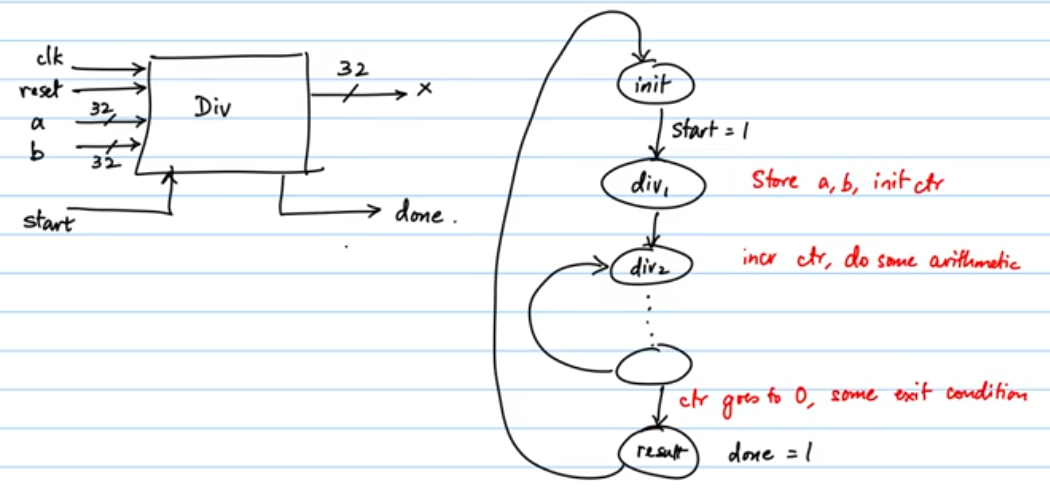 clk
reset
32
a
b
32
start
Div
32
x
done.
init
start = 1
div1
Store a, b, init ctr
div2
incr ctr, do some arithmetic
ctr goes to 0, some exit condition
result
done = 1